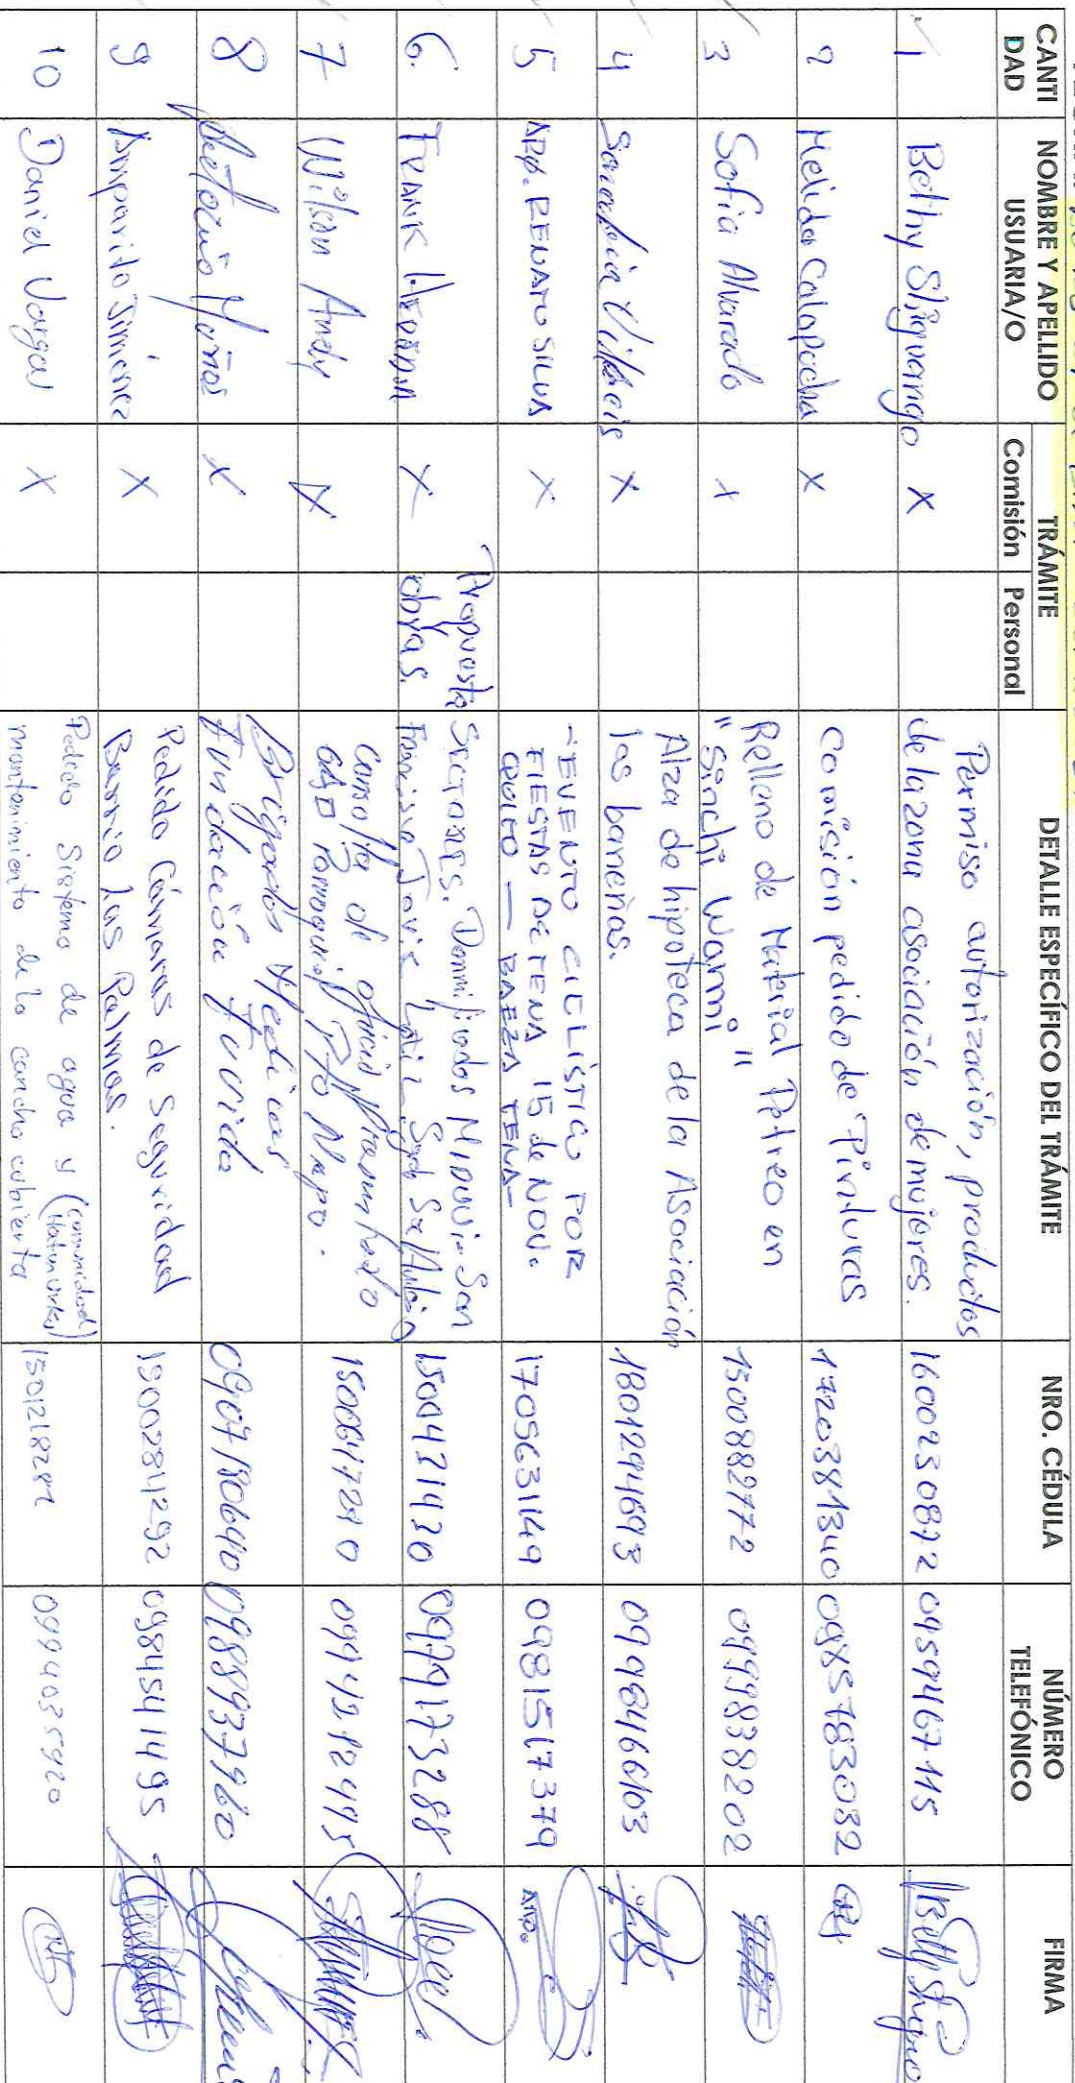 CANTI DAD | NOMBRE Y APELLIDO USUARIA/O | TRÁMITE Comisión | Personal | DETALLE ESPECÍFICO DEL TRÁMITE | NRO. CÉDULA | NÚMERO TELEFÓNICO | FIRMA
1 Bethy Shiguango X Permiso autorización, productos
de la zona asociación de mujeres. 1600230872 0959467115
2 Melida Calapucha X Comisión pedido de Pinturas 1720381340 0985783032
3 Sofia Alvarado X Relleno de Material Petreo en
"Sinchi Warmi" 1500882772 0999838202
4 X Alza de hipoteca de la Asociación
los baneños. 1801294693 0998466103
5 ARQ. RENATO SILVA X - EVENTO CICLÍSTICO POR
FIESTAS DE TENA 15 de NOV.
QUITO — BAEZA TENA - 1705631149 0981517379 ARQ.
6. FRANK X Propuesta
obras. Sectores. Miduvi - San
1500421420 0979173288
7 Wilson Andy X Consulta de oficio
GAD Parroquial Pto Napo.
8 Muñoz X Brigadas Medicas
Fundación 0907180640 0988937960
9 Amparito Jimenez X Pedido Cámaras de Seguridad
Barrio las Palmas. 1500281292 0984541495
10 Daniel Vargas X Pedido Sistema de agua y (comunidad
mantenimiento de la cancha cubierta 0994035920